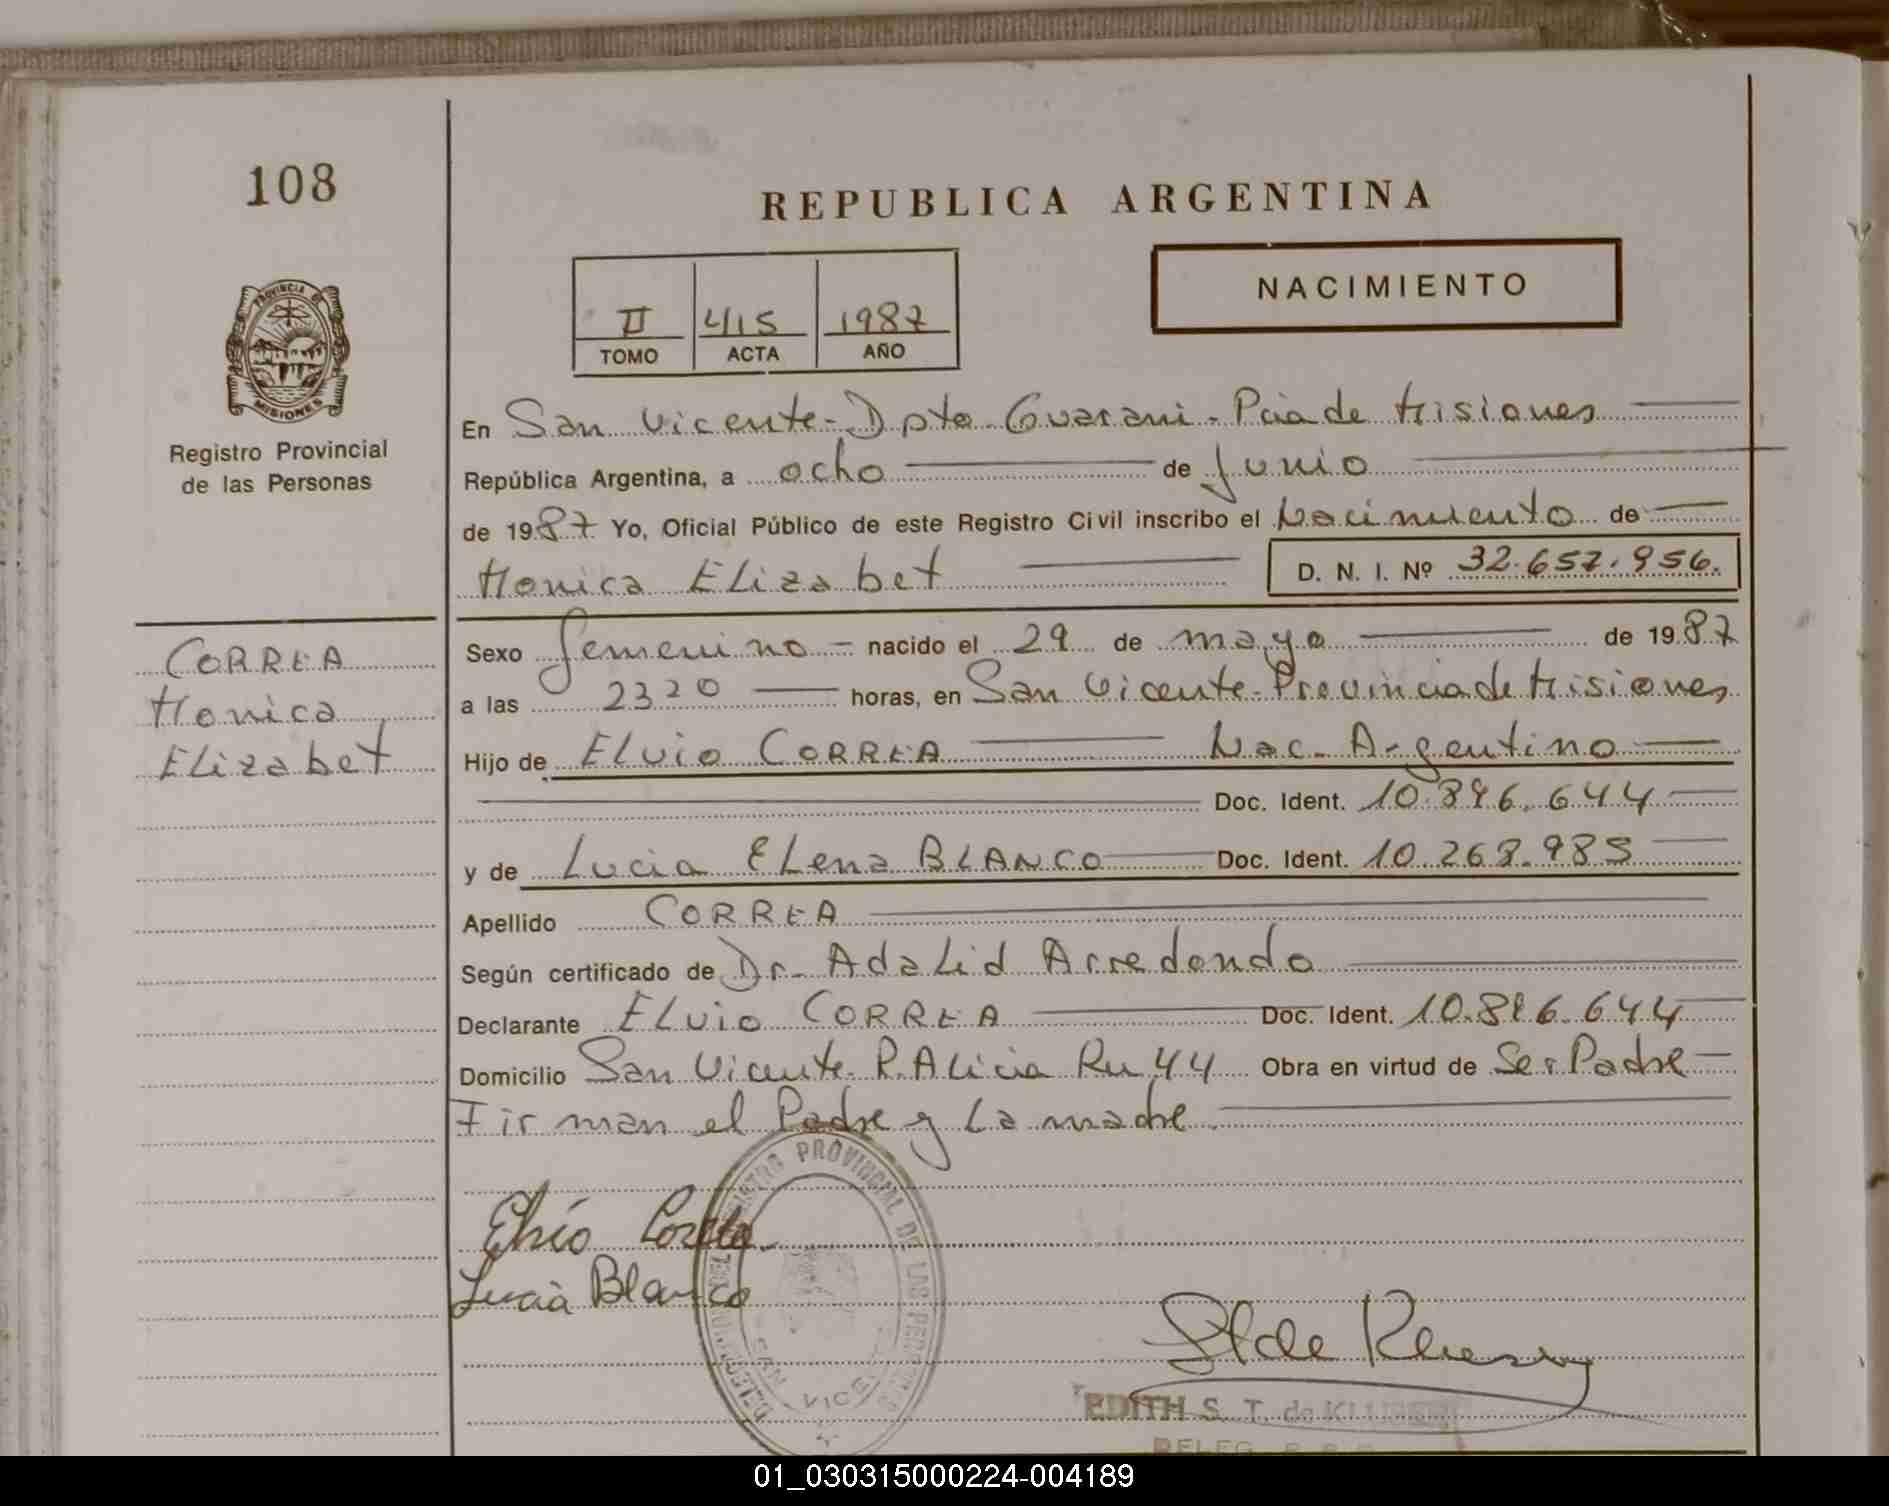 108
REPUBLICA ARGENTINA
NACIMIENTO
II 415 1987
TOMO ACTA AÑO
PROVINCIA DE
MISIONES
Registro Provincial
de las Personas
En San Vicente - Dpto Guarani - Pcia de Misiones
República Argentina, a ocho de Junio
de 1987 Yo, Oficial Público de este Registro Civil inscribo el Nacimiento de
Monica Elizabet D. N. I. Nº 32.657.956.
CORREA
Monica
Elizabet
Sexo femenino - nacido el 29 de mayo de 1987
a las 2320 horas, en San Vicente - Provincia de Misiones
Hijo de Elvio CORREA Nac. Argentino
Doc. Ident. 10.896.644
y de Lucia Elena BLANCO Doc. Ident. 10.268.985
Apellido CORREA
Según certificado de Dr. Adalid Arredondo
Declarante Elvio CORREA Doc. Ident. 10.896.644
Domicilio San Vicente - P. Alicia Ru 44 Obra en virtud de Ser Padre
Firman el Padre y La madre.
Elvio Correa
Lucia Blanco
REGISTRO PROVINCIAL DE LAS PERSONAS
SAN VICENTE
EDITH S. T. de
DELEG.
01_030315000224-004189